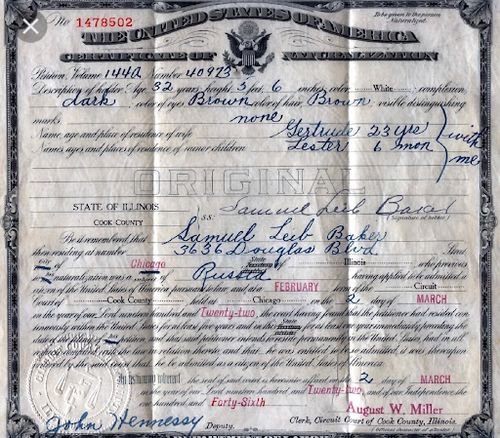 No. 1478502
To be given to the person Naturalized.
THE UNITED STATES OF AMERICA
CERTIFICATE OF NATURALIZATION
Petition, Volume 144A Number 40973
Description of holder: Age, 32 years; height, 5 feet, 6 inches; color, White; complexion,
dark; color of eyes, Brown; color of hair, Brown; visible distinguishing
marks, none
Name, age and place of residence of wife Gertrude 23 yrs
Names, ages and places of residence of minor children Lester 6 mon
with me
ORIGINAL
STATE OF ILLINOIS
COOK COUNTY
S.S:
Samuel Leib Baker
(Signature of holder)
Be it remembered, that Samuel Leib Baker
then residing at number 3636 Douglas Blvd
of Chicago State of Illinois who
naturalization was a of Russia having applied to be admitted a
citizen of the United States of America pursuant to law, and at a FEBRUARY term of the Circuit
Court of Cook County held at Chicago on the 2 day of MARCH
in the year of our Lord nineteen hundred and Twenty-two, the court having found that the petitioner had resided con-
tinuously within the United States for at least five years and in this
by the said court that he be admitted as a citizen of the United States of America.
In testimony whereof the seal of said court is hereunto affixed on the 2 day of MARCH
in the year of our Lord nineteen hundred and Twenty-two, and of our Independence the
one hundred and Forty-Sixth
August W. Miller
John Hennessy Deputy.
Clerk, Circuit Court of Cook County, Illinois.